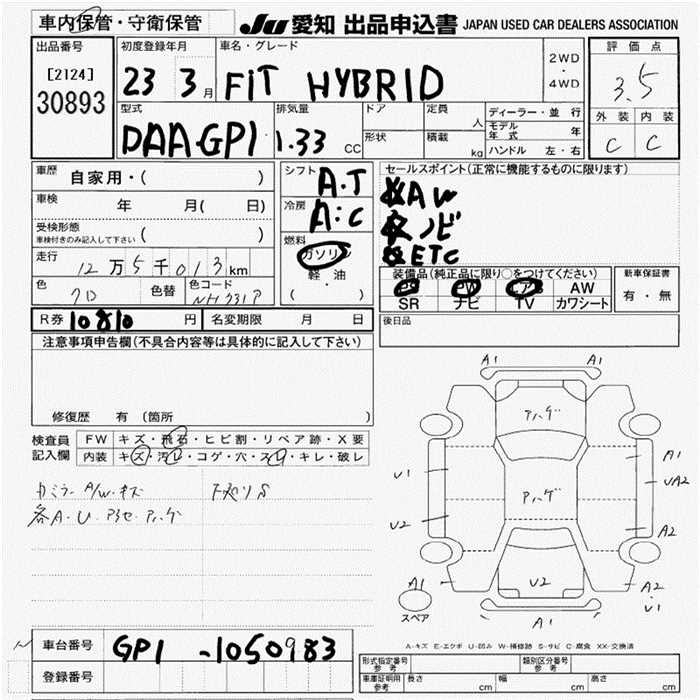 車内保管・守衛保管
JU 愛知 出品申込書 JAPAN USED CAR DEALERS ASSOCIATION
出品番号
[2124]
30893
初度登録年月
23 3月
車名・グレード
FIT HYBRID
2WD
・
4WD
評価点
3.5
外装 内装
C C
型式
DAA.GP1
排気量
1.33 CC
ドア
形状
定員 人
積載 kg
ディーラー・並行
モデル年式 年
ハンドル 左・右
車歴
自家用・( )
車検 年 月( 日)
受検形態
車検付きのみ記入して下さい ( )
走行
12万5千013km
色
クロ
色替
色コード
NH731P
シフト
A.T
冷房
A:C
燃料
ガソリン
軽油
( ・ )
セールスポイント(正常に機能するものに限ります)
AW
ナビ
ETC
装備品(純正品に限り○をつけてください)
PS PW エアB AW
SR ナビ TV カワシート
新車保証書
有・無
R券 10810 円
名変期限 月 日
後日品
注意事項申告欄(不具合内容等は具体的に記入して下さい)
修復歴 有 (箇所 )
検査員
記入欄
FW キズ・飛石・ヒビ割・リペア跡・X要
内装 キズ・汚レ・コゲ・穴・スレ・キレ・破レ
A/W.キズ
各A・U
A1 A1
U1
U2
A1
A2
A2
U1
U2
A1
A1
スペア
A-キズ E-エクボ U-凹み W-補修跡 S-サビ C-腐食 XX-交換済
車台番号
GP1-1050983
登録番号
形式指定番号
参考
類別区分番号
参考
車庫証明用
参考
長さ cm
幅 cm
高さ cm